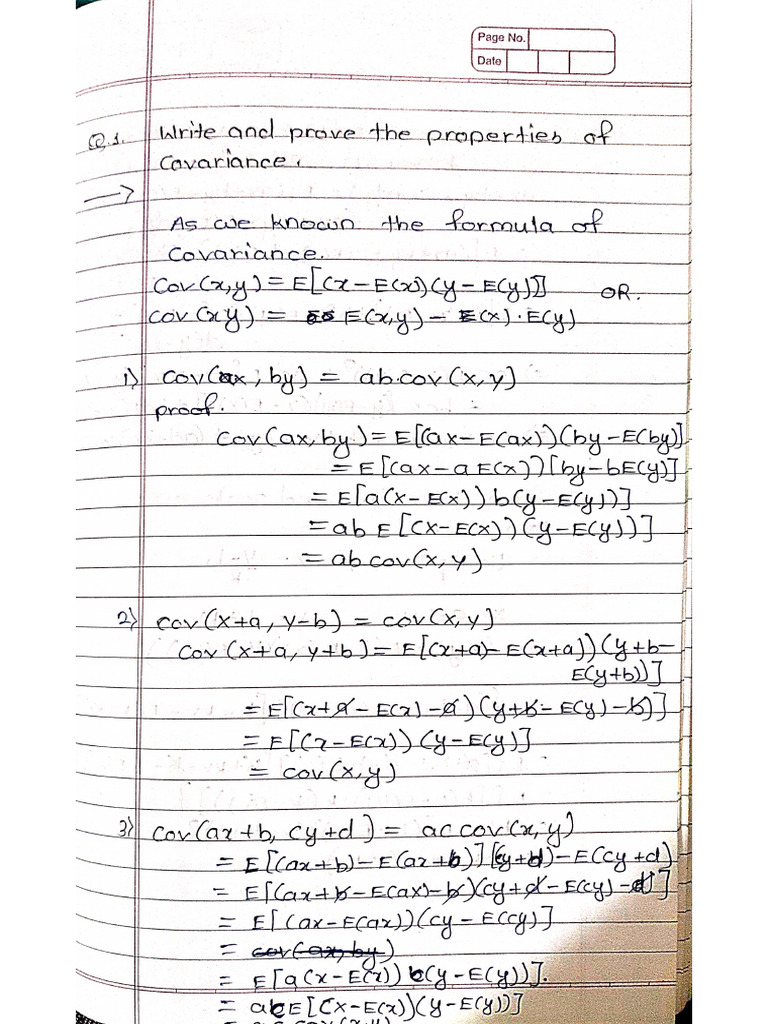 Page No.
Date
Q.1. Write and prove the properties of
covariance.
→
As we known the formula of
covariance.
cov(x,y) = E[(x-E(x))(y-E(y))] OR.
cov(xy) = E(x,y) - E(x)·E(y)
1) cov(ax, by) = ab·cov(x,y)
proof.
cov(ax,by) = E[(ax-E(ax))(by-E(by)]
= E[(ax-aE(x))[by-bE(y)]
= E[a(x-E(x)) b(y-E(y))]
= ab E[(x-E(x))(y-E(y))]
= ab cov(x,y)
2) cov(x+a, y-b) = cov(x,y)
cov(x+a, y+b) = E[(x+a)-E(x+a))(y+b-
E(y+b))]
= E[(x+a-E(x)-a)(y+b-E(y)-b)]
= E[(x-E(x))(y-E(y)]
= cov(x,y)
3) cov(ax+b, cy+d) = ac cov(x,y)
= E[(ax+b)-E(ax+b)][cy+d)-E(cy+d)
= E[(ax+b-E(ax)-b)(cy+d-E(cy)-d)]
= E[(ax-E(ax))(cy-E(cy)]
= cov(ax, by)
= E[a(x-E(x)) c(y-E(y))].
= acE[(x-E(x))(y-E(y))]